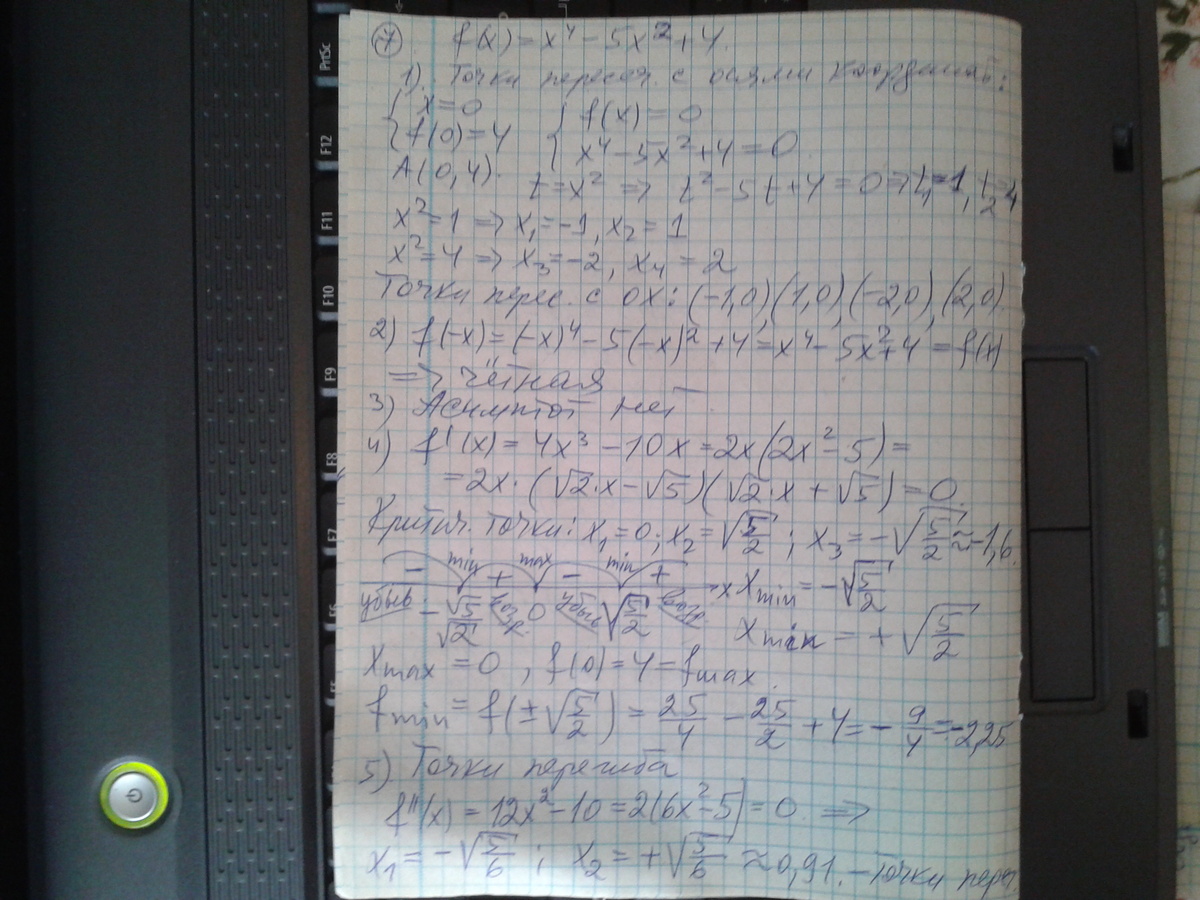 ⑦ f(x) = x⁴ - 5x² + 4.
1). Точки пересеч. с осями координат:
{ x = 0 { f(x) = 0
{ f(0) = 4 { x⁴ - 5x² + 4 = 0
A(0,4).
t = x² => t² - 5t + 4 = 0 => t₁ = 1, t₂ = 4
x² = 1 => x₁ = -1, x₂ = 1
x² = 4 => x₃ = -2, x₄ = 2
Точки перес. с OX: (-1,0), (1,0), (-2,0), (2,0).
2) f(-x) = (-x)⁴ - 5(-x)² + 4 = x⁴ - 5x² + 4 = f(x)
=> чётная
3) Асимптот нет.
4) f'(x) = 4x³ - 10x = 2x(2x² - 5) =
= 2x·(√2·x - √5)(√2·x + √5) = 0
Критич. точки: x₁ = 0; x₂ = √(5/2); x₃ = -√(5/2) ≈ -1,6.
- min + max - min + x
убыв. -√5/√2 возр 0 убыв √(5/2) возр
xmin = -√(5/2)
xmin = +√(5/2)
xmax = 0, f(0) = 4 = fmax.
fmin = f(±√(5/2)) = 25/4 - 25/2 + 4 = -9/4 = -2,25
5) Точки перегиба
f''(x) = 12x² - 10 = 2(6x² - 5) = 0 =>
x₁ = -√(5/6); x₂ = +√(5/6) ≈ 0,91. - точки пере
PrtSc
F12
F11
F10
F9
F8
F7
F6